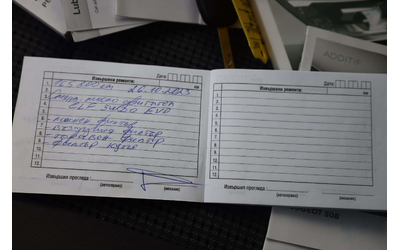 Lub
ADDITIF
Дата:
Извършени ремонти:
км
1. 165 800 км 26.10.2023
2.
3. Смяна масло двигател
4. ELF 5W20 EVO
5.
6. маслен филтър
7. въздушен филтър
8. горивен филтър
9. филтър купе
10.
11.
12.
Извършил прегледа:
(автосервиз)
(механик)
Дата:
Извършени ремонти:
км
1.
2.
3.
4.
5.
6.
7.
8.
9.
10.
11.
12.
Извършил прегледа:
(автосервиз)
(механик)
PEUGEOT SUB